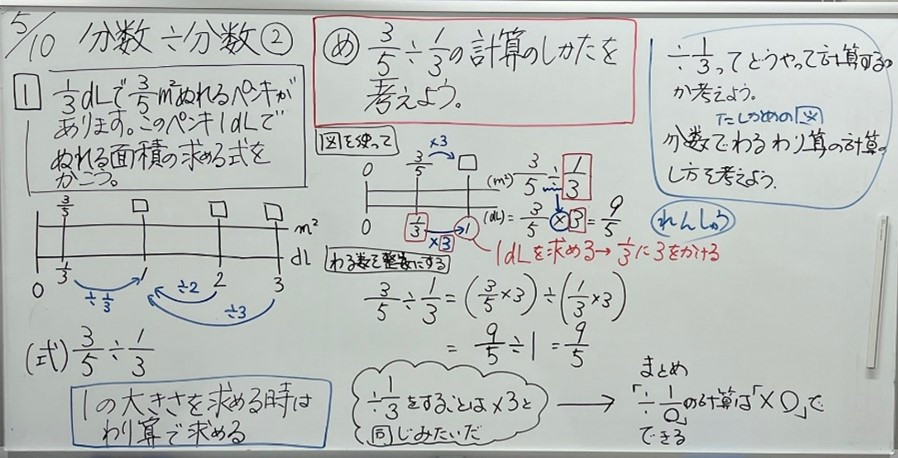 5/10 分数÷分数②
1 1/3dLで3/5m²ぬれるペンキが
あります。このペンキ1dLで
ぬれる面積の求める式を
かこう。
3/5 □ □ □ m²
0 1/3 1 2 3 dL
÷1/3 ÷2 ÷3
(式) 3/5÷1/3
1の大きさを求める時は
わり算で求める
め 3/5÷1/3の計算のしかたを
考えよう。
図を使って
×3
0 3/5 □ (m²)
0 1/3 1 (dL)
×3
3/5÷1/3
=3/5×3=9/5
1dLを求める→1/3に3をかける
わる数を整数にする
3/5÷1/3=(3/5×3)÷(1/3×3)
=9/5÷1=9/5
÷1/3をすることは×3と
同じみたいだ
→
まとめ
「÷1/○」の計算は「×○」で
できる
÷1/3ってどうやって計算するの
か考えよう。
たしかめの図
分数でわるわり算の計算の
し方を考えよう。
れんしゅう